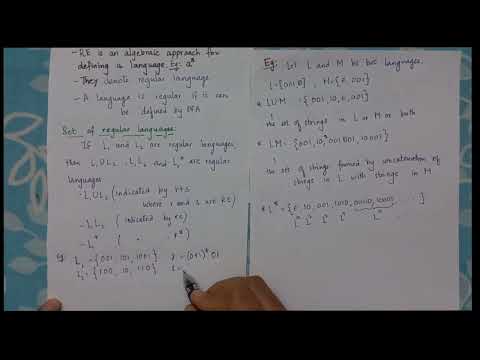 - RE is an algebraic approach for
defining a language. Eg: a*
- They denote regular language
- A language is regular if it can
be defined by DFA
Set of regular languages:
If L₁ and L₂ are regular languages,
then L₁UL₂, L₁L₂ and L₁* are regular
languages
- L₁UL₂ (indicated by r+s
where r and s are RE)
- L₁L₂ ( indicated by rs)
- L₁* ( " r*)
Eg: L₁ = {001, 101, 1001} r = (0+1)* 01
L₂ = {100, 10, 110} s =
Eg: Let L and M be two languages.
L = {001,10} M = {ε, 001}
LUM = {001, 10, ε, 001}
the set of strings in L or M or both
LM = {001, 10, 001001, 10001}
the set of strings formed by concatenation of
strings in L with strings in M
L* = {ε, 10, 001, 1010,